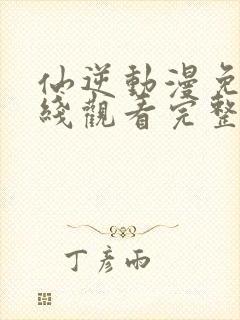 仙逆動漫免
綫觀看完整
丁彥雨